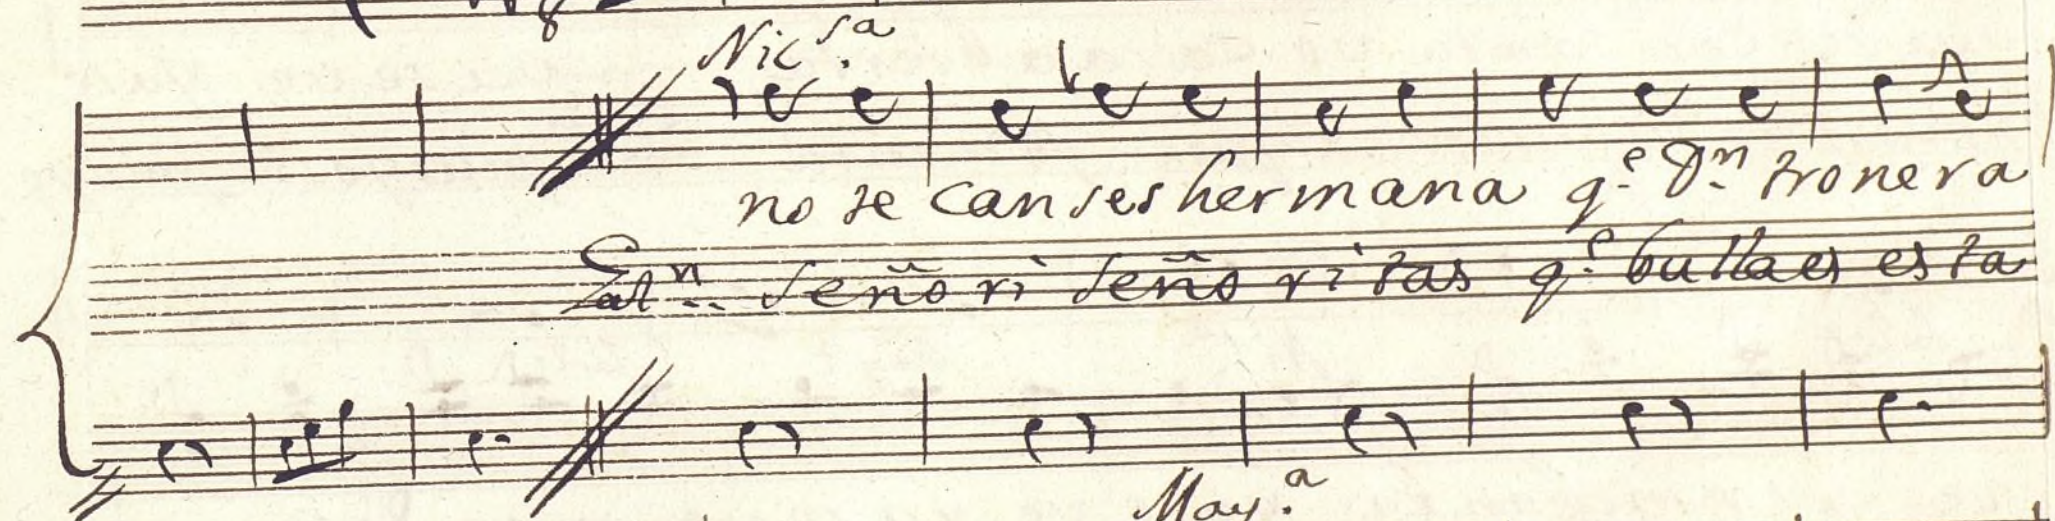 Nic.sa
no te canses hermana q.e D.n tronera
señori señoritas q.e bulla es esta
May.a